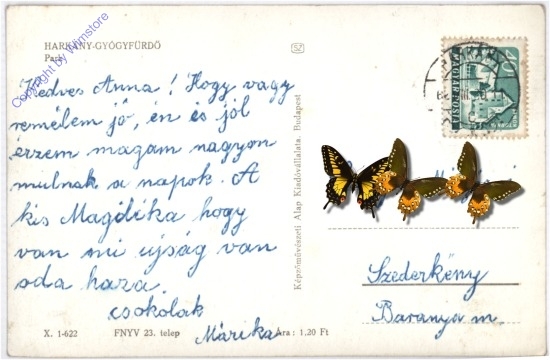 HARKÁNY-GYÓGYFÜRDŐ
Park
Copyright by Wimstore
Kedves Anna! Hogy vagy
remélem jó, én is jól
érzem magam nagyon
mulnak a napok. A
kis Magdika hogy
van mi ujság van
oda haza.
csokolak
Márika
X. 1-622 FNYV 23. telep Ára: 1.20 Ft
SZ
Képzőművészeti Alap Kiadóvállalata, Budapest
MAGYAR POSTA
Szederkény
Baranya m.